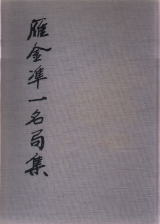 雁金準一名局集